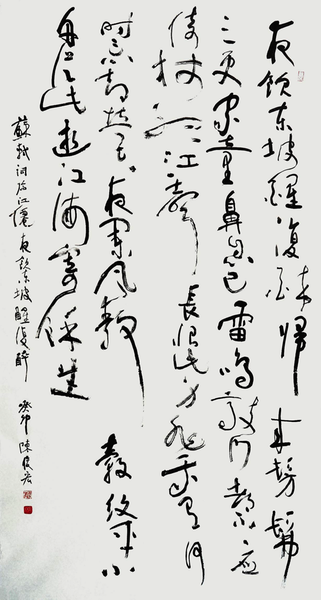 夜饮东坡醒復醉歸来髣髴
三更家童鼻息已雷鸣敲门都不应
倚杖听江聲長恨此身非我有何
时忘却营营夜阑风静縠纹平小
舟从此逝江海寄餘生
蘇軾词临江僊夜饮东坡醒復醉 癸卯 陈